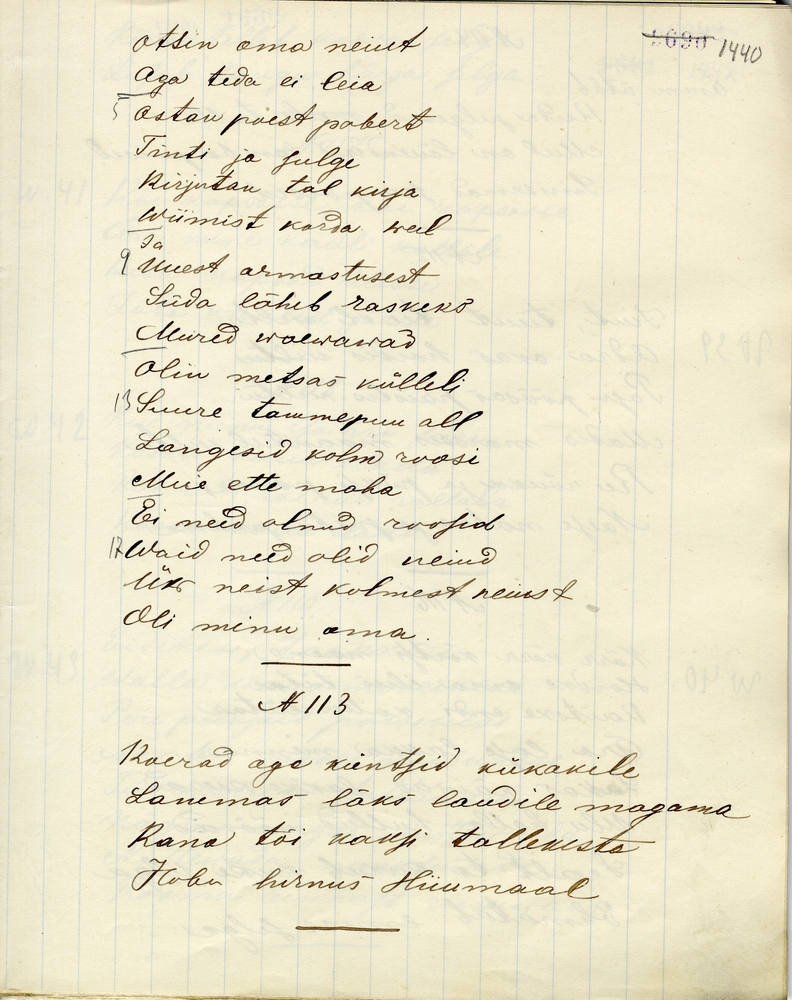 1440
otsin oma neiut
Aga teda ei leia
5 Ostan poest pobert
Tinti ja sulge
Kirjutan tal kirja
Wiimist korda weel
Ja
9 Uuest armastusest
Süda läheb raskeks
Mured waewawad
Olin metsas külleli
13 Suure tammepuu all
Langesid kolm roosi
Miie ette maha
Ei need olnud roosid
17 Waid need olid neiud
Üks neist kolmest neiust
Oli minu oma.
N 113
Koerad age küntsid kükakile
Lanemas läks laudile magama
Kana tõi kaksi tallekesta
Hobu hirnus Hiiumaal